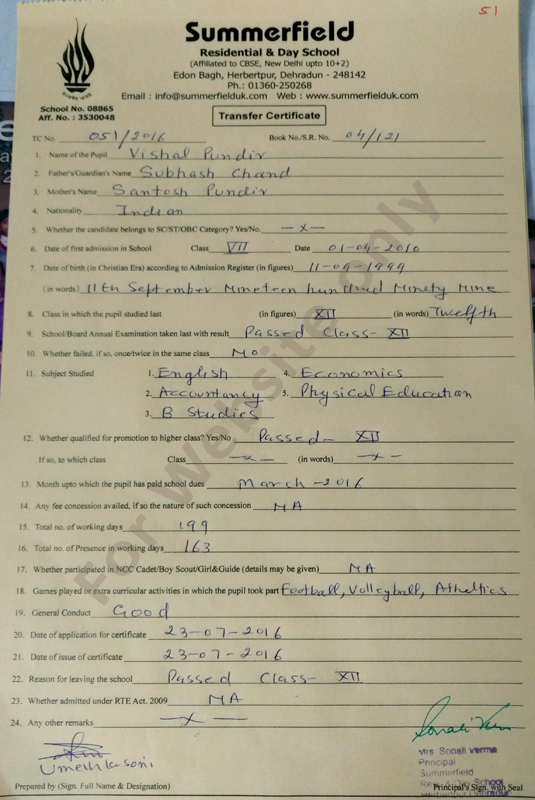 51
Summerfield
Residential & Day School
(Affiliated to CBSE, New Delhi upto 10+2)
Edon Bagh, Herbertpur, Dehradun - 248142
Ph.: 01360-250268
Email : info@summerfielduk.com Web : www.summerfielduk.com
School No. 08865
Aff. No. : 3530048
Transfer Certificate
TC No. 051/2016 Book No./S.R. No. 04/121
1. Name of the Pupil Vishal Pundir
2. Father's/Guardian's Name Subhash Chand
3. Mother's Name Santosh Pundir
4. Nationality Indian
5. Whether the candidate belongs to SC/ST/OBC Category? Yes/No. —x—
6. Date of first admission in School Class VII Date 01-04-2010
7. Date of birth (in Christian Era) according to Admission Register (in figures) 11-09-1999
(in words) 11th September Nineteen hundred Ninety Nine
8. Class in which the pupil studied last (in figures) XII (in words) Twelfth
9. School/Board Annual Examination taken last with result Passed Class- XII
10. Whether failed, if so, once/twice in the same class No
11. Subject Studied 1. English 4. Economics
2. Accountancy 5. Physical Education
3. B Studies
12. Whether qualified for promotion to higher class? Yes/No Passed- XII
If so, to which class Class —x— (in words) —x—
13. Month upto which the pupil has paid school dues March -2016
14. Any fee concession availed, If so the nature of such concession NA
15. Total no. of working days 199
16. Total no. of Presence in working days 163
17. Whether participated in NCC Cadet/Boy Scout/Girl&Guide (details may be given) NA
18. Games played or extra curricular activities in which the pupil took part Football, Volleyball, Atheltics
19. General Conduct Good
20. Date of application for certificate 23-07-2016
21. Date of issue of certificate 23-07-2016
22. Reason for leaving the school Passed Class- XII
23. Whether admitted under RTE Act. 2009 NA
24. Any other remarks —x—
Sonali
Mrs Sonali Verma
Principal
Summerfield
Resi & Day School
Herbertpur Dehradun
Prepared by (Sign. Full Name & Designation) Principal's Sign. with Seal
For Website only